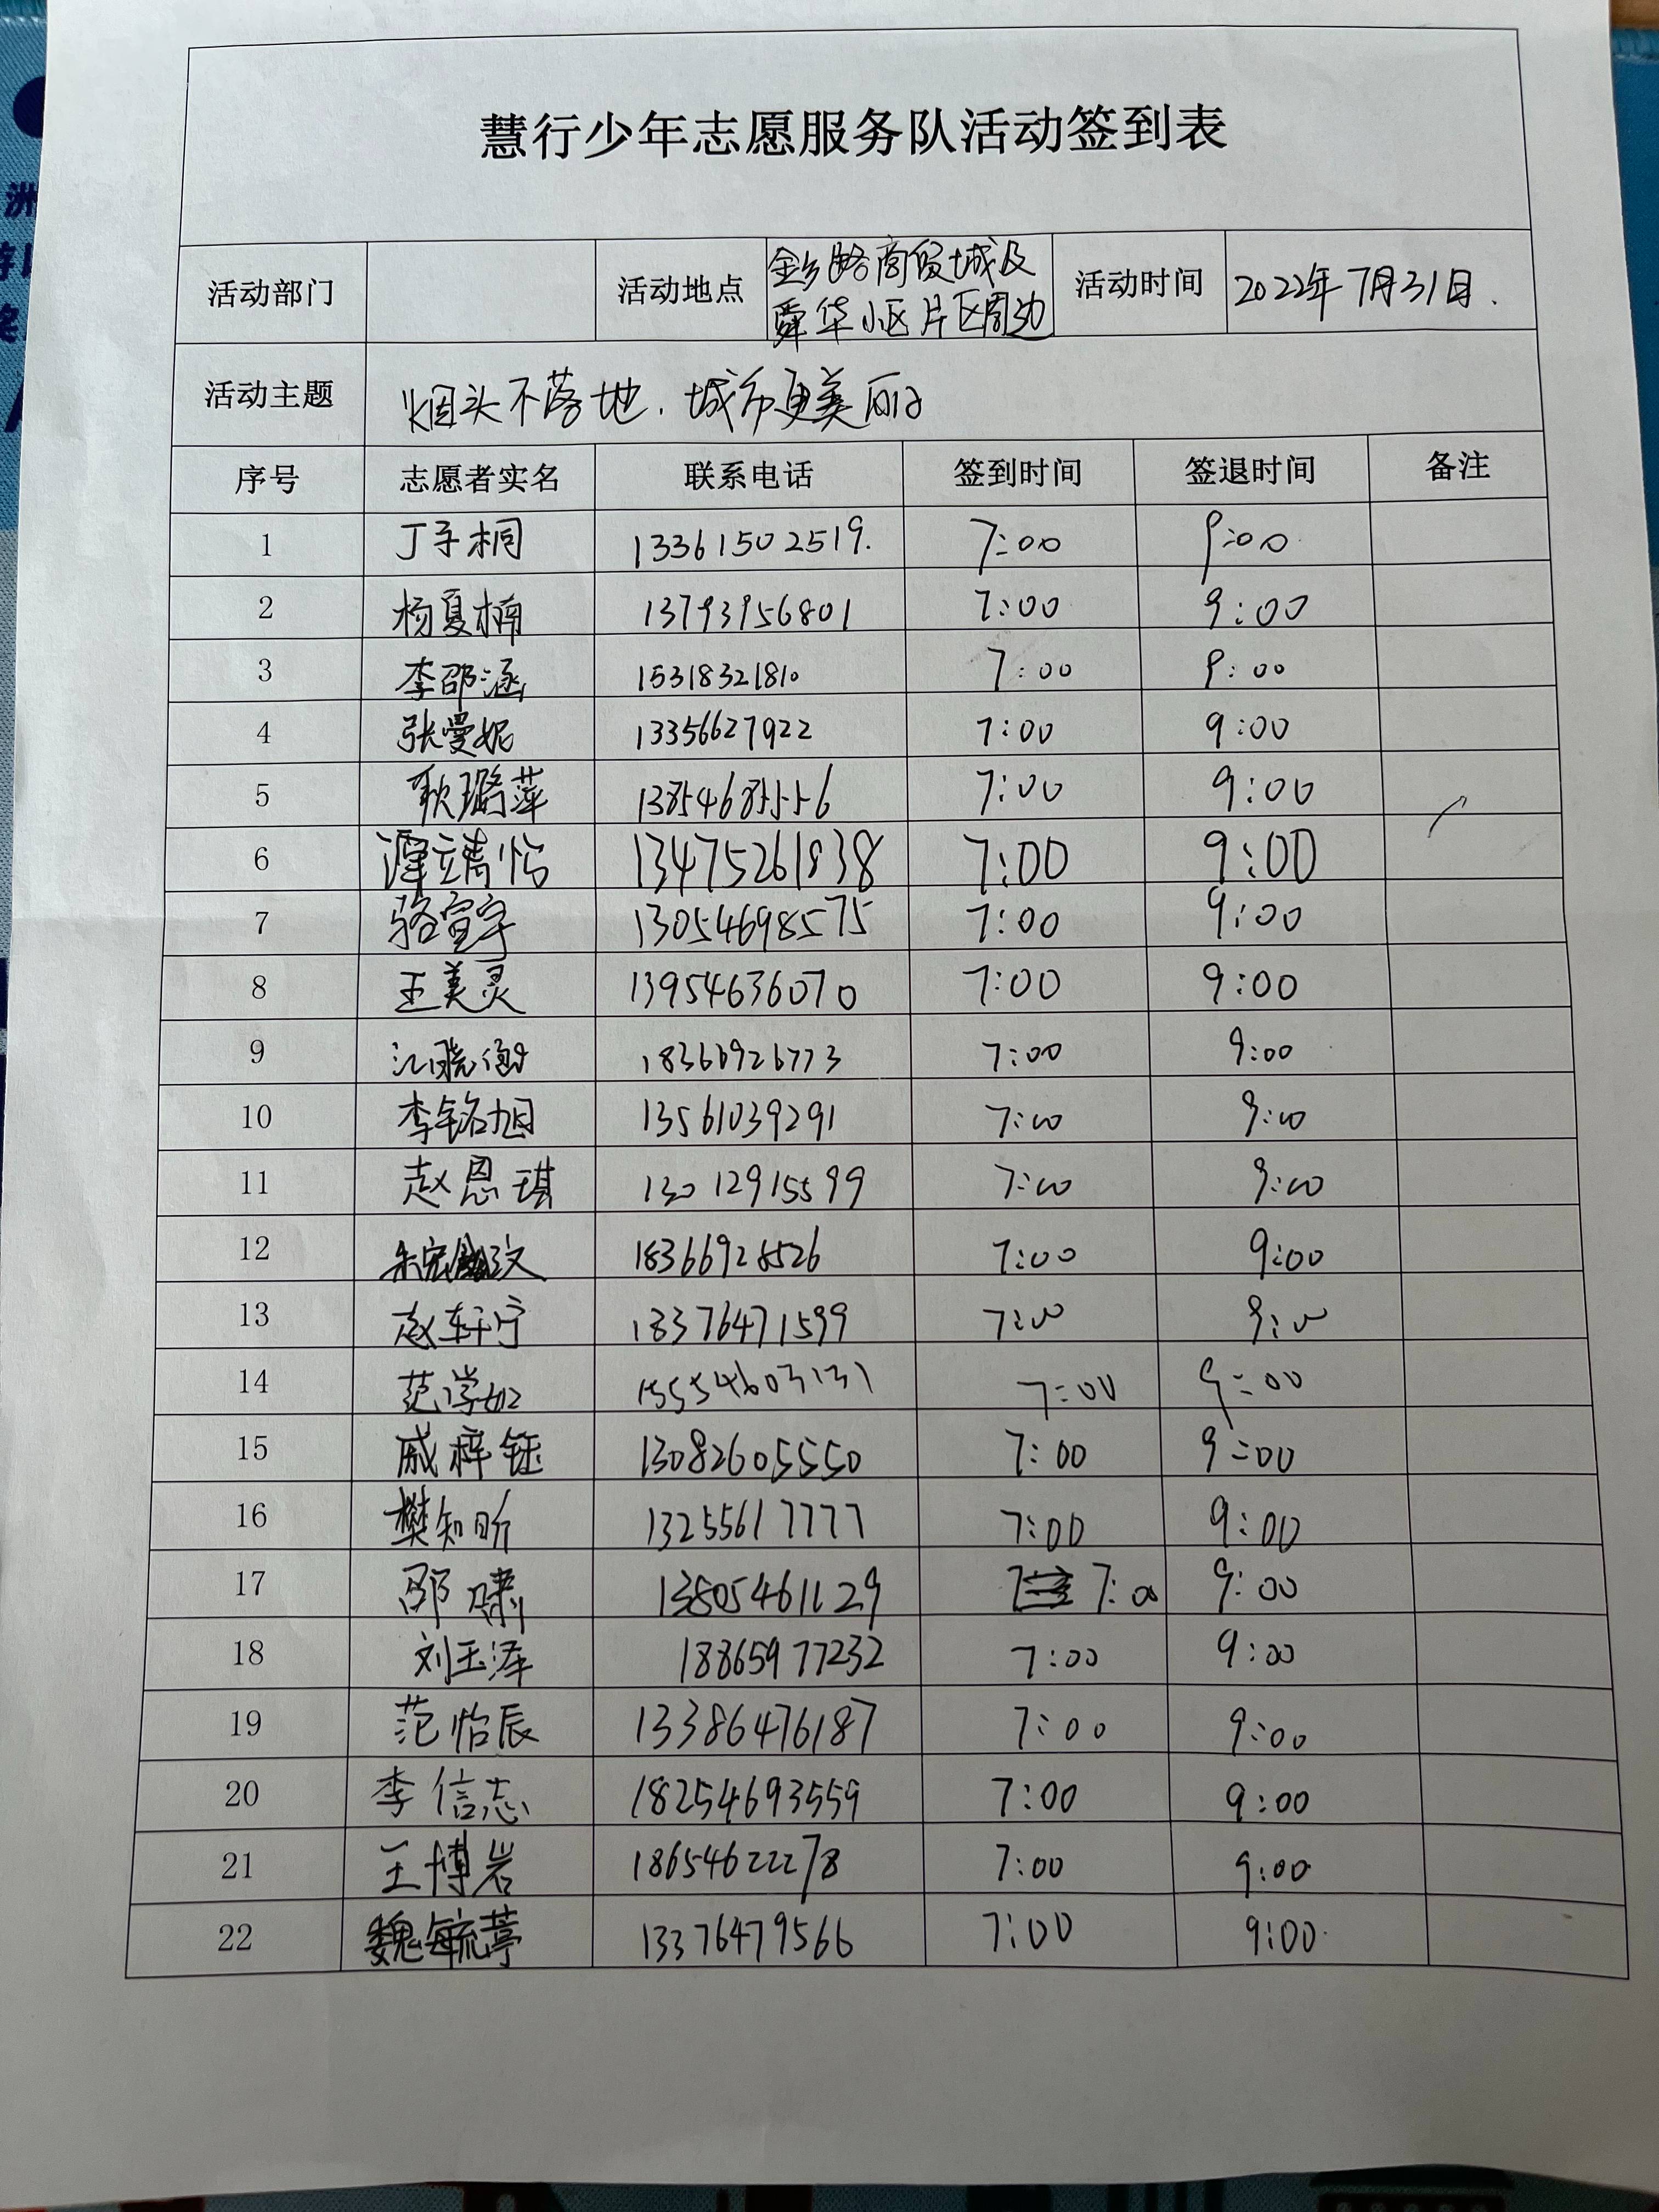 慧行少年志愿服务队活动签到表
活动部门 活动地点 金乡路商贸城及舜华小区片区周边 活动时间 2022年7月31日.
活动主题 烟头不落地.城市更美丽
序号 志愿者实名 联系电话 签到时间 签退时间 备注
1 丁子桐 13361502519. 7:00 9:00
2 杨夏楠 13793956801 7:00 9:00
3 李邵涵 15318321810 7:00 9:00
4 张曼妮 13356627922 7:00 9:00
5 耿璐萍 13854685556 7:00 9:00
6 谭靖怡 13475261838 7:00 9:00
7 骆宣宇 13054698575 7:00 9:00
8 王美灵 13954636070 7:00 9:00
9 18366926773 7:00 9:00
10 李铭旭 13561039291 7:00 9:00
11 赵恩琪 13012915599 7:00 9:00
12 18366928526 7:00 9:00
13 赵轩宁 18376471599 7:00 9:00
14 范学如 15554603131 7:00 9:00
15 戚梓钰 13082605550 7:00 9:00
16 樊知昕 13255617777 7:00 9:00
17 邵啸 13805461129 7:00 9:00
18 刘玉泽 18865977232 7:00 9:00
19 范怡辰 13386476187 7:00 9:00
20 李信志 18254693559 7:00 9:00
21 王博岩 18654622278 7:00 9:00
22 魏毓葶 13376479566 7:00 9:00
洲